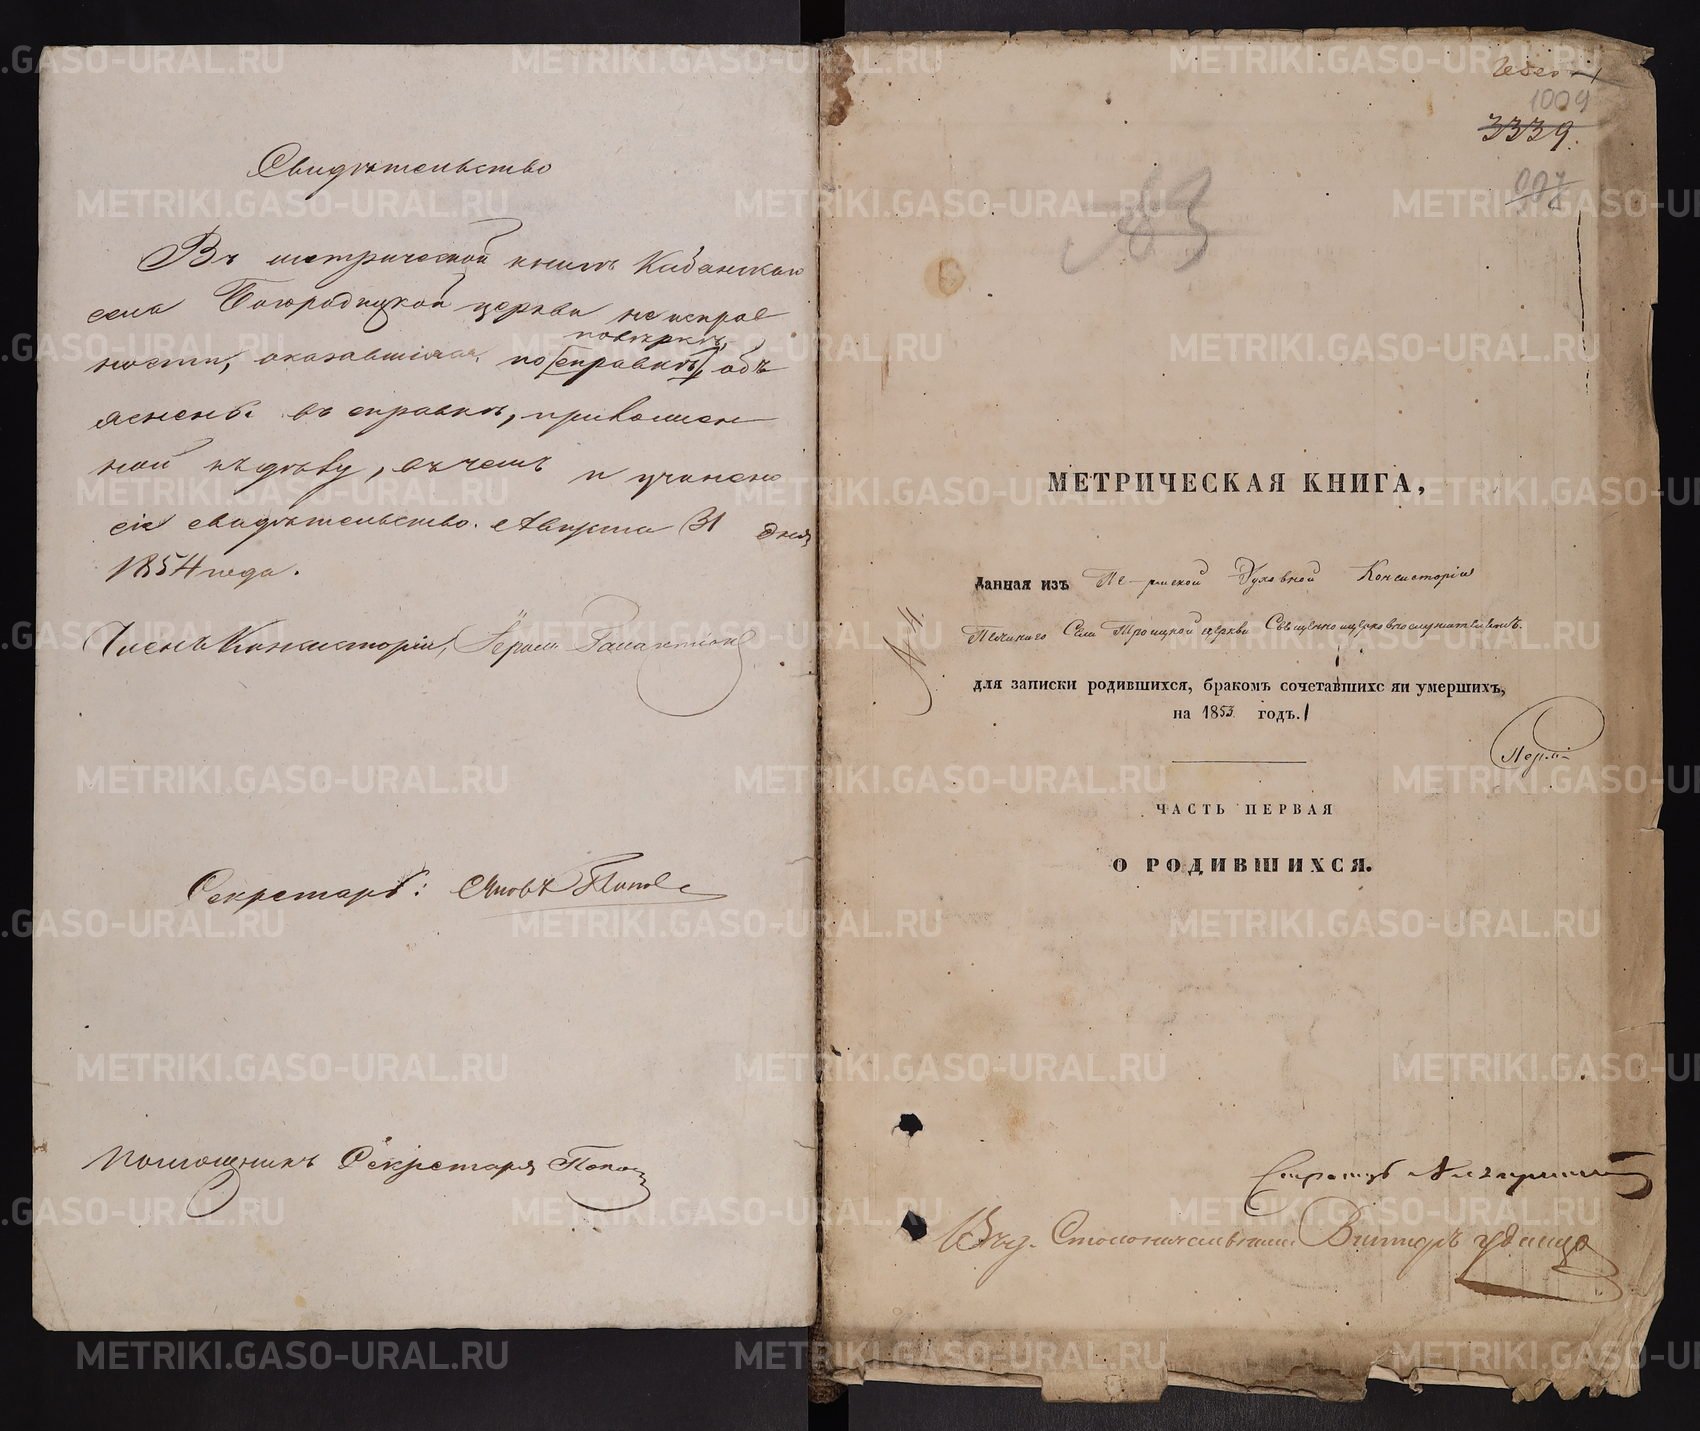 Свидѣтельство
Въ метрической книгѣ Кабанскаго
села Богородицкой церкви неисправ
ности, оказавшіяся по [справкѣ] объ
повѣркѣ,
яснены въ справкѣ, приложен
ной къ дѣлу, въ чемъ и учинено
сіе свидѣтельство. Августа 31 дня
1854 года.
Членъ Консисторіи,
Секретарь: Яковъ Поповъ
Помощникъ Секретаря Поповъ
1009
3339.
83
МЕТРИЧЕСКАЯ КНИГА,
данная изъ Пермской Духовной Консисторіи
Села Троицкой церкви Священноцерковнослужителямъ.
№ 4.
для записки родившихся, бракомъ сочетавшихс яи умершихъ,
на 1853 годъ.
ЧАСТЬ ПЕРВАЯ
О РОДИВШИХСЯ.
Столоначальника
METRIKI.GASO-URAL.RU